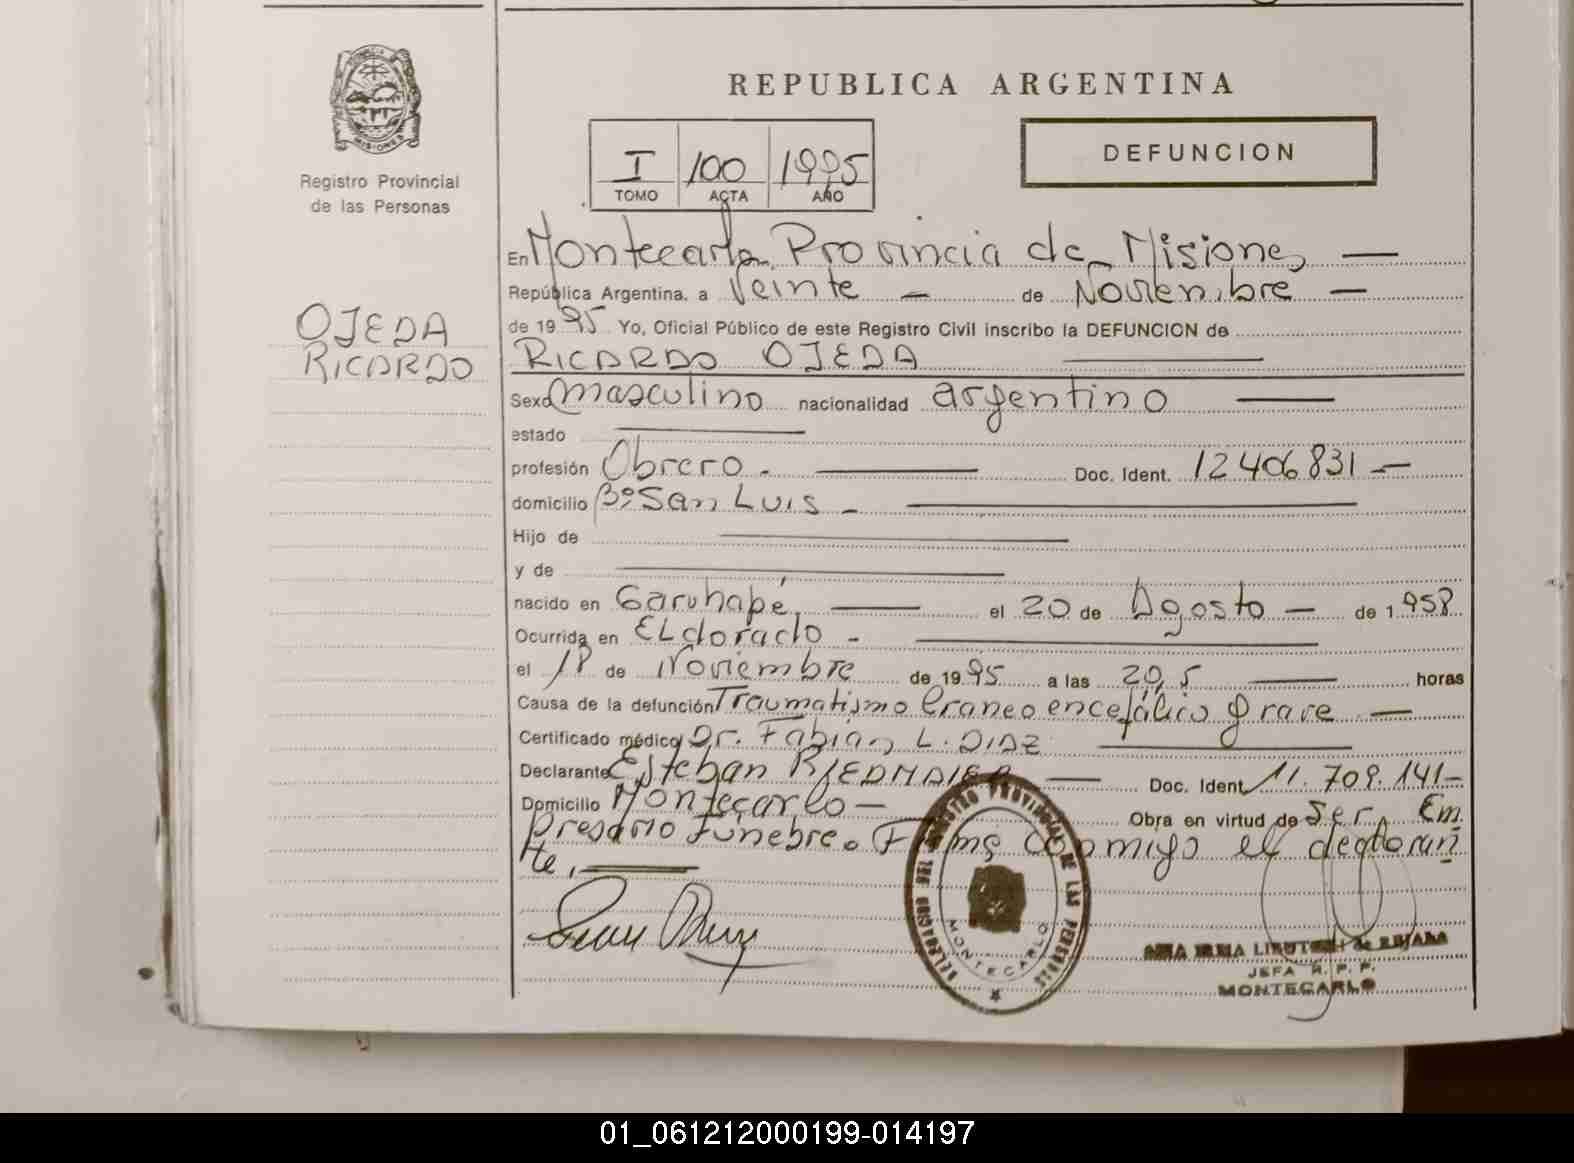 REPUBLICA ARGENTINA
PROVINCIA
MISIONES
Registro Provincial
de las Personas
I 100 1995
TOMO ACTA AÑO
DEFUNCION
En Montecarlo, Provincia de Misiones —
República Argentina, a Veinte — de Noviembre —
de 1995 Yo, Oficial Público de este Registro Civil inscribo la DEFUNCION de
OJEDA
RICARDO
RICARDO OJEDA
Sexo masculino nacionalidad argentino —
estado —
profesión Obrero. — Doc. Ident. 12406831 —
domicilio Bº San Luis —
Hijo de —
y de —
nacido en Garuhapé, — el 20 de Agosto — de 1.958
Ocurrida en ELdorado —
el 18 de Noviembre de 1995 a las 20,5 — horas
Causa de la defunción Traumatismo Craneo encefálico grave —
Certificado médico Dr. Fabian L. DIAZ —
Declarante Esteban RIEDMAIER — Doc. Ident. 11.709.141-
Domicilio Montecarlo — Obra en virtud de Ser Em
presario Fúnebre. Firma conmigo el declaran
te, —
REGISTRO PROVINCIAL DE LAS PERSONAS
MONTECARLO
JEFA R. P. P.
MONTECARLO
01_061212000199-014197